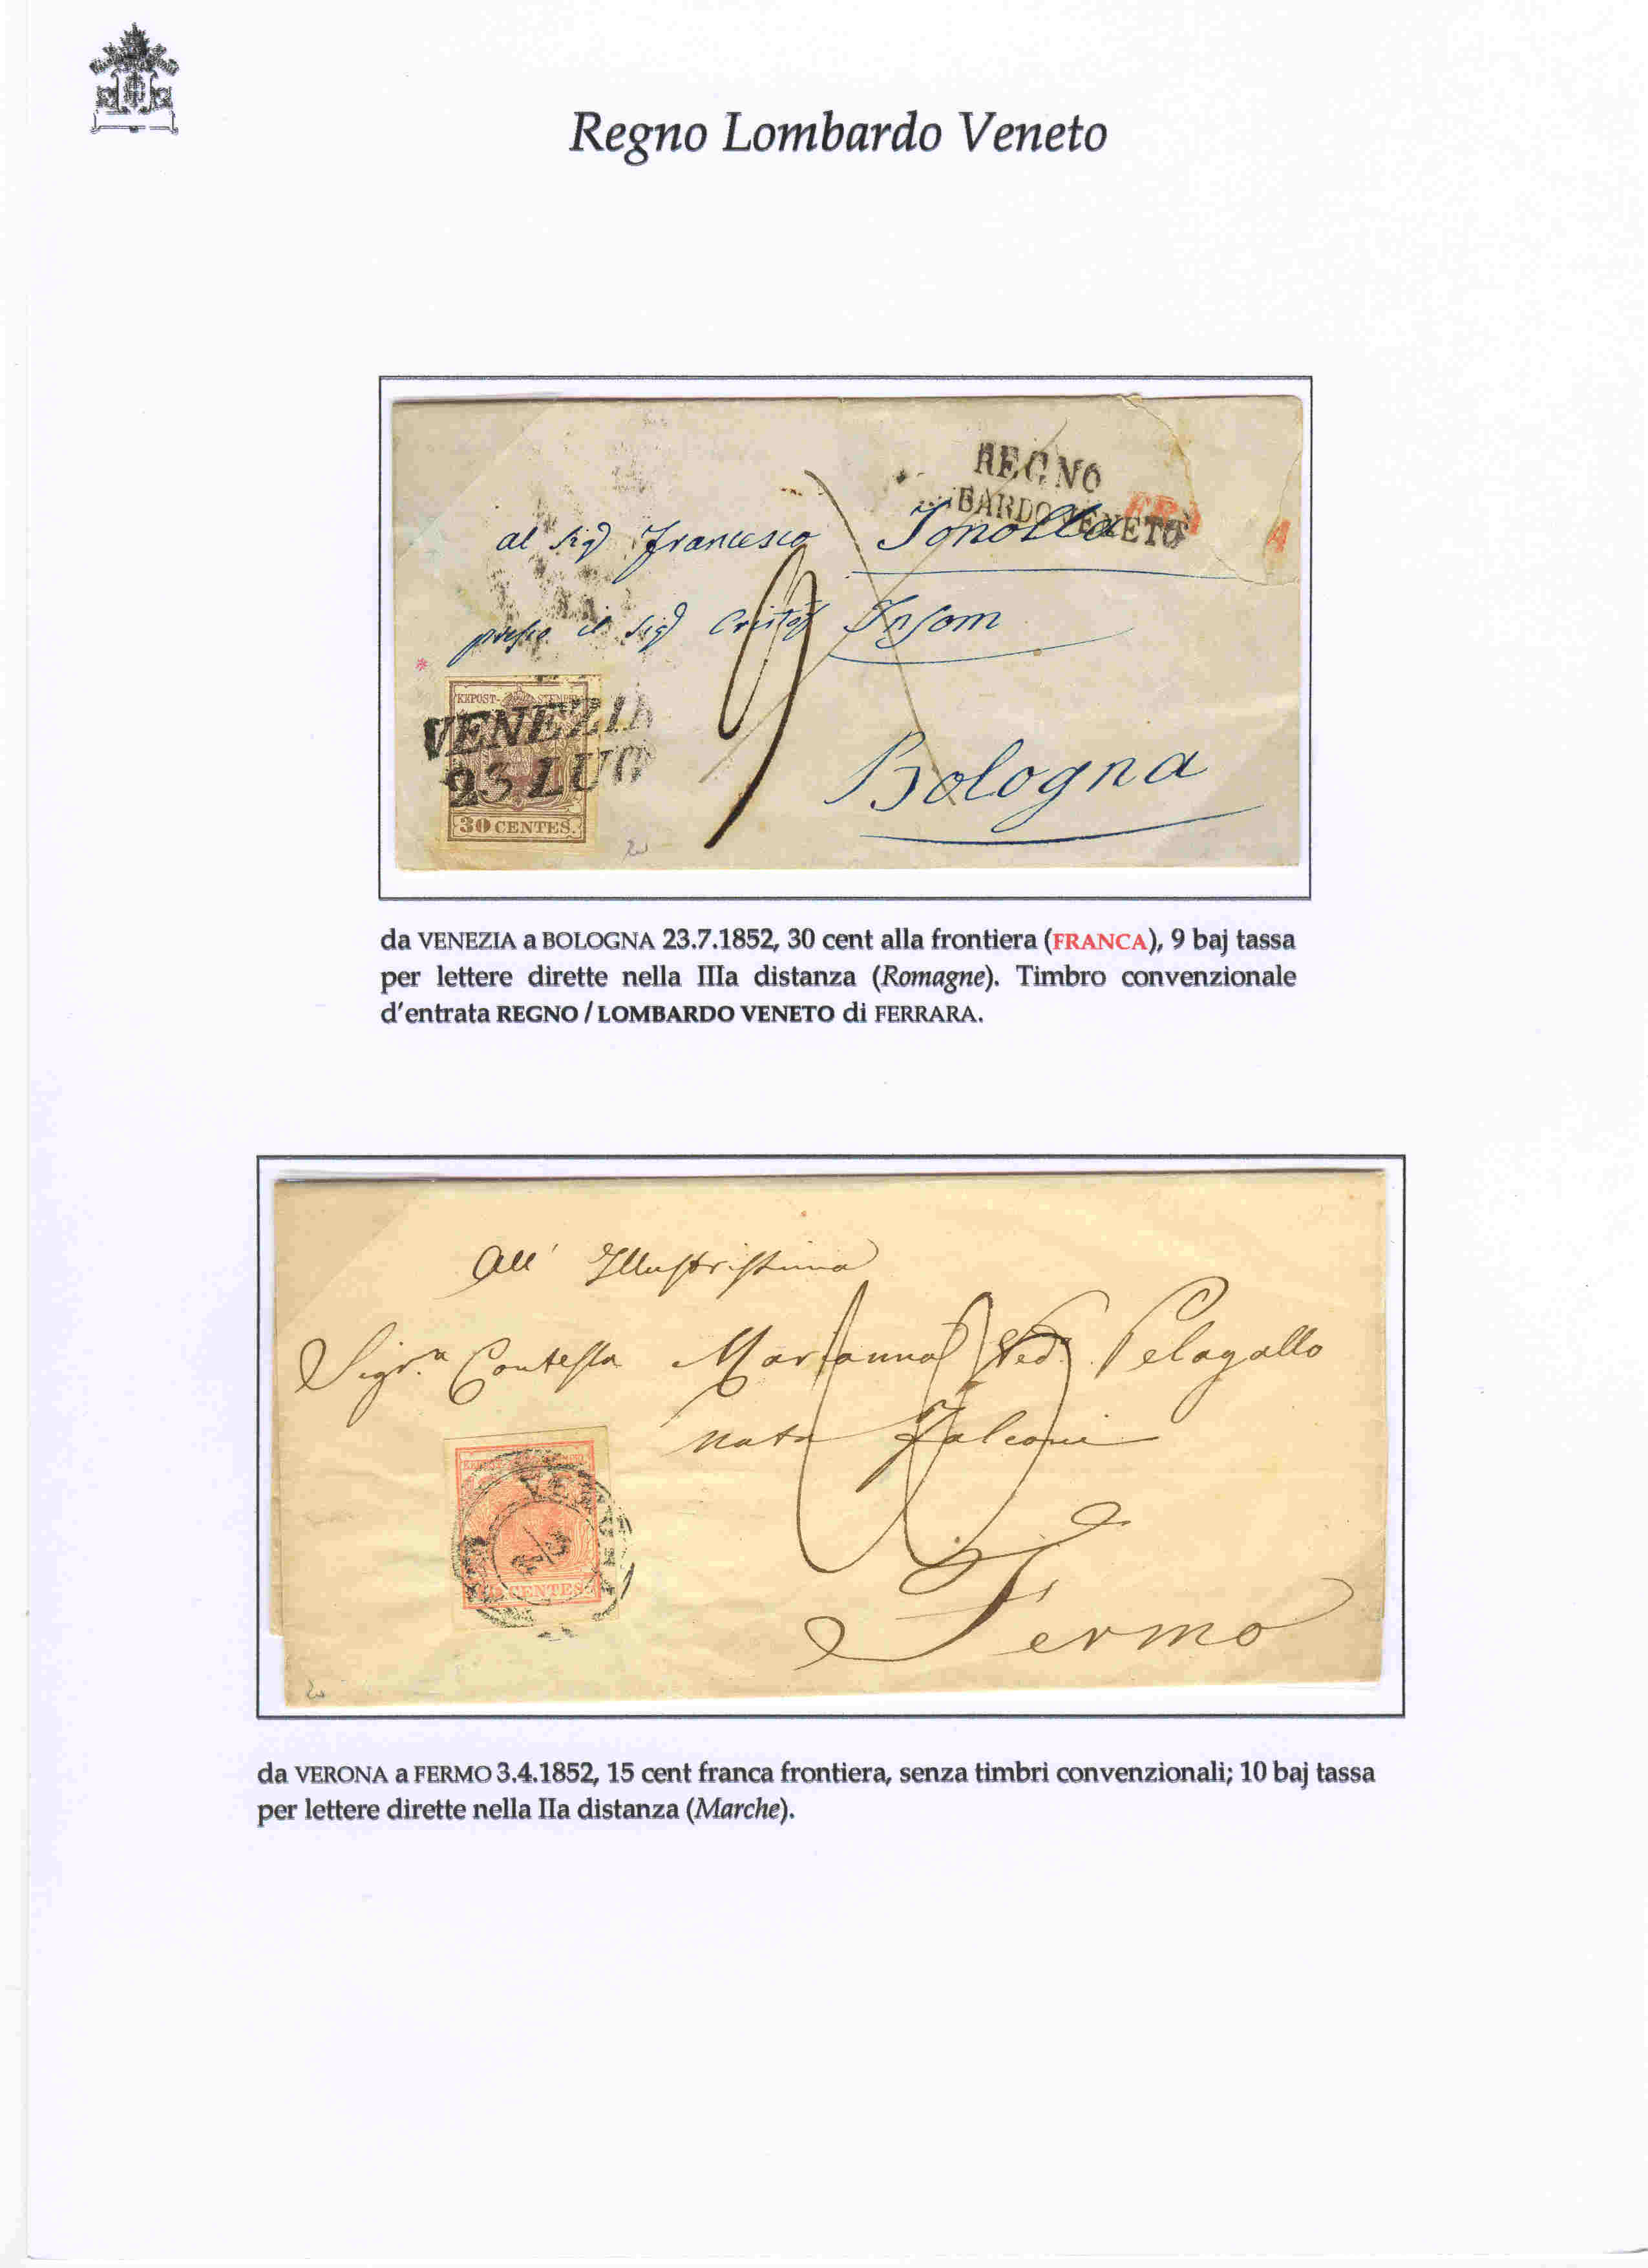 Regno Lombardo Veneto
REGNO
BARDO VENETO
FRA A
al Sigʳ Francesco
presso il Sigʳ Insom
9
KKPOST- STEMPEL
VENEZIA
23 LUG
30 CENTES.
Bologna
da VENEZIA a BOLOGNA 23.7.1852, 30 cent alla frontiera (FRANCA), 9 baj tassa
per lettere dirette nella IIIa distanza (Romagne). Timbro convenzionale
d'entrata REGNO / LOMBARDO VENETO di FERRARA.
All' Illustrissima
Sigr.ª Contessa Marianna Ved.ª Pelagallo
nata Falconi
10
VERONA
CENTES.
Fermo
da VERONA a FERMO 3.4.1852, 15 cent franca frontiera, senza timbri convenzionali; 10 baj tassa
per lettere dirette nella IIa distanza (Marche).